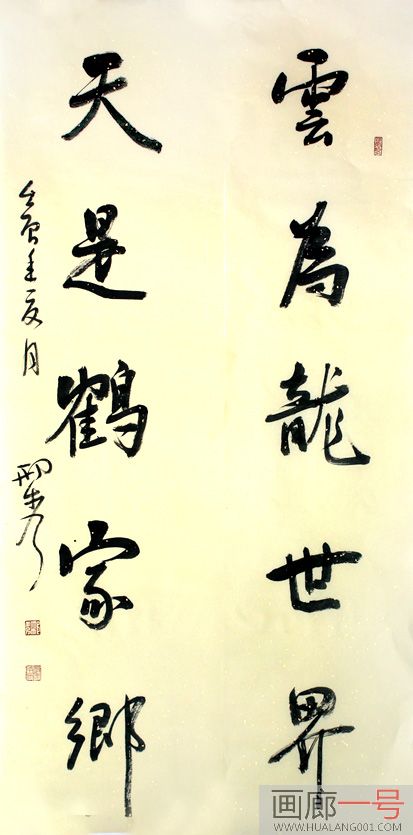 雲為龍世界
天是鶴家鄉
壬寅年夏月
画廊一号
WWW.HUALANG001.COM